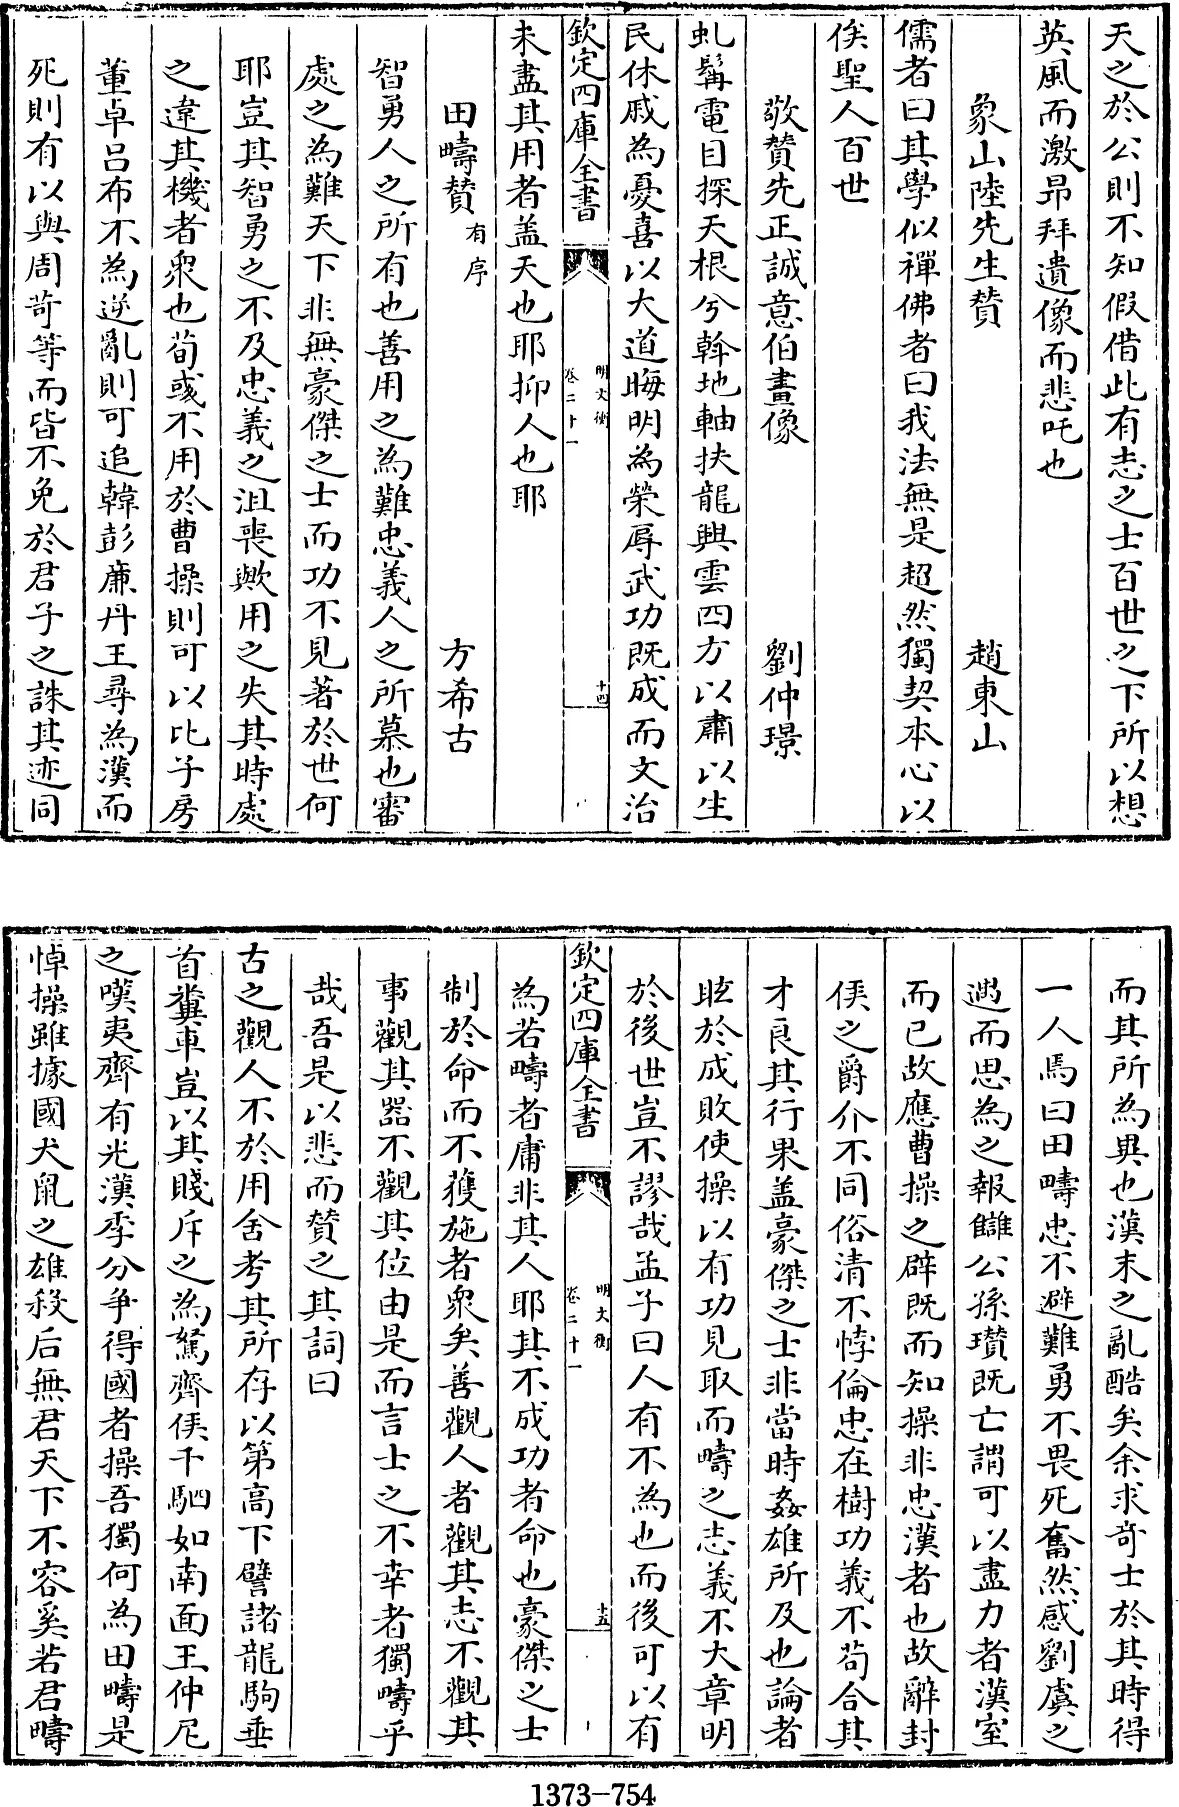 天之於公則不知假借此有志之士百世之下所以想
英風而激昂拜遺像而悲吒也
象山陸先生贊 趙東山
儒者曰其學似禪佛者曰我法無是超然獨契本心以
俟聖人百世
敬贊先正誠意伯畫像 劉仲璟
虬髯電目探天根兮斡地軸扶龍興雲四方以肅以生
民休戚為憂喜以大道晦明為榮辱武功既成而文治
欽定四庫全書
明文衡
卷二十一
十四
未盡其用者盖天也耶抑人也耶
田疇贊有序 方希古
智勇人之所有也善用之為難忠義人之所慕也審
處之為難天下非無豪傑之士而功不見著於世何
耶豈其智勇之不及忠義之沮喪歟用之失其時處
之違其機者衆也荀彧不用於曹操則可以比子房
董卓呂布不為逆亂則可追韓彭廉丹王尋為漢而
死則有以與周苛等而皆不免於君子之誅其迹同
而其所為異也漢末之亂酷矣余求奇士於其時得
一人焉曰田疇忠不避難勇不畏死奮然感劉虞之
遇而思為之報讎公孫瓚既亡謂可以盡力者漢室
而已故應曹操之辟既而知操非忠漢者也故辭封
侯之爵介不同俗清不悖倫忠在樹功義不苟合其
才良其行果盖豪傑之士非當時姦雄所及也論者
眩於成敗使操以有功見取而疇之志義不大章明
於後世豈不謬哉孟子曰人有不為也而後可以有
欽定四庫全書
明文衡
卷二十一
十五
為若疇者庸非其人耶其不成功者命也豪傑之士
制於命而不獲施者衆矣善觀人者觀其志不觀其
事觀其器不觀其位由是而言士之不幸者獨疇乎
哉吾是以悲而贊之其詞曰
古之觀人不於用舍考其所存以第高下譬諸龍駒垂
首糞車豈以其賤斥之為駑齊侯千駟如南面王仲尼
之嘆夷齊有光漢季分爭得國者操吾獨何為田疇是
悼操雖據國犬鼠之雄殺后無君天下不容奚若君疇
1373-754